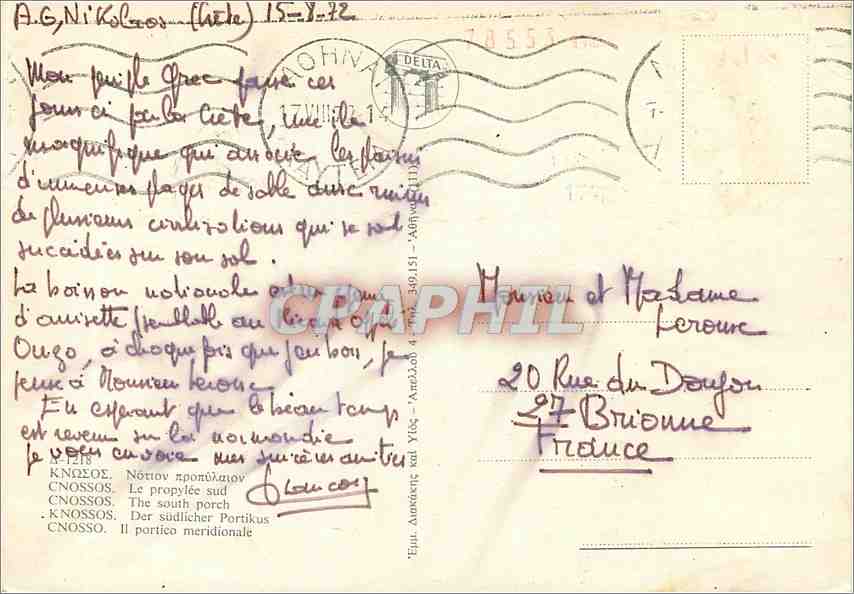 A.G, Nikolaos (Crète) 15-8-72
Mon périple Grec passe ces
jours ci par la Crète, une île
magnifique qui associe les plaisirs
d'immenses plages de sable aux ruines
de plusieurs civilisations qui se sont
succédées sur son sol.
La boisson nationale est un genre
d'anisette semblable au
Ouzo, à chaque fois que j'en bois, je
pense à Monsieur Lerouse
En espérant que le beau temps
est revenu sur la normandie
je vous envoie mes sincères amitiés
Δ-1218
ΚΝΩΣΟΣ. Νότιον προπύλαιον
CNOSSOS. Le propylée sud
CNOSSOS. The south porch
KNOSSOS. Der südlicher Portikus
CNOSSO. Il portico meridionale
Ἐμμ. Διακάκης καὶ Υἱὸς - Ἀπελλοῦ 4 - Τηλ. 349.151 - Ἀθῆναι (111)
DELTA
CPAPHIL
Monsieur et Madame
Lerouse
20 Rue du Donjon
27 Brionne
France